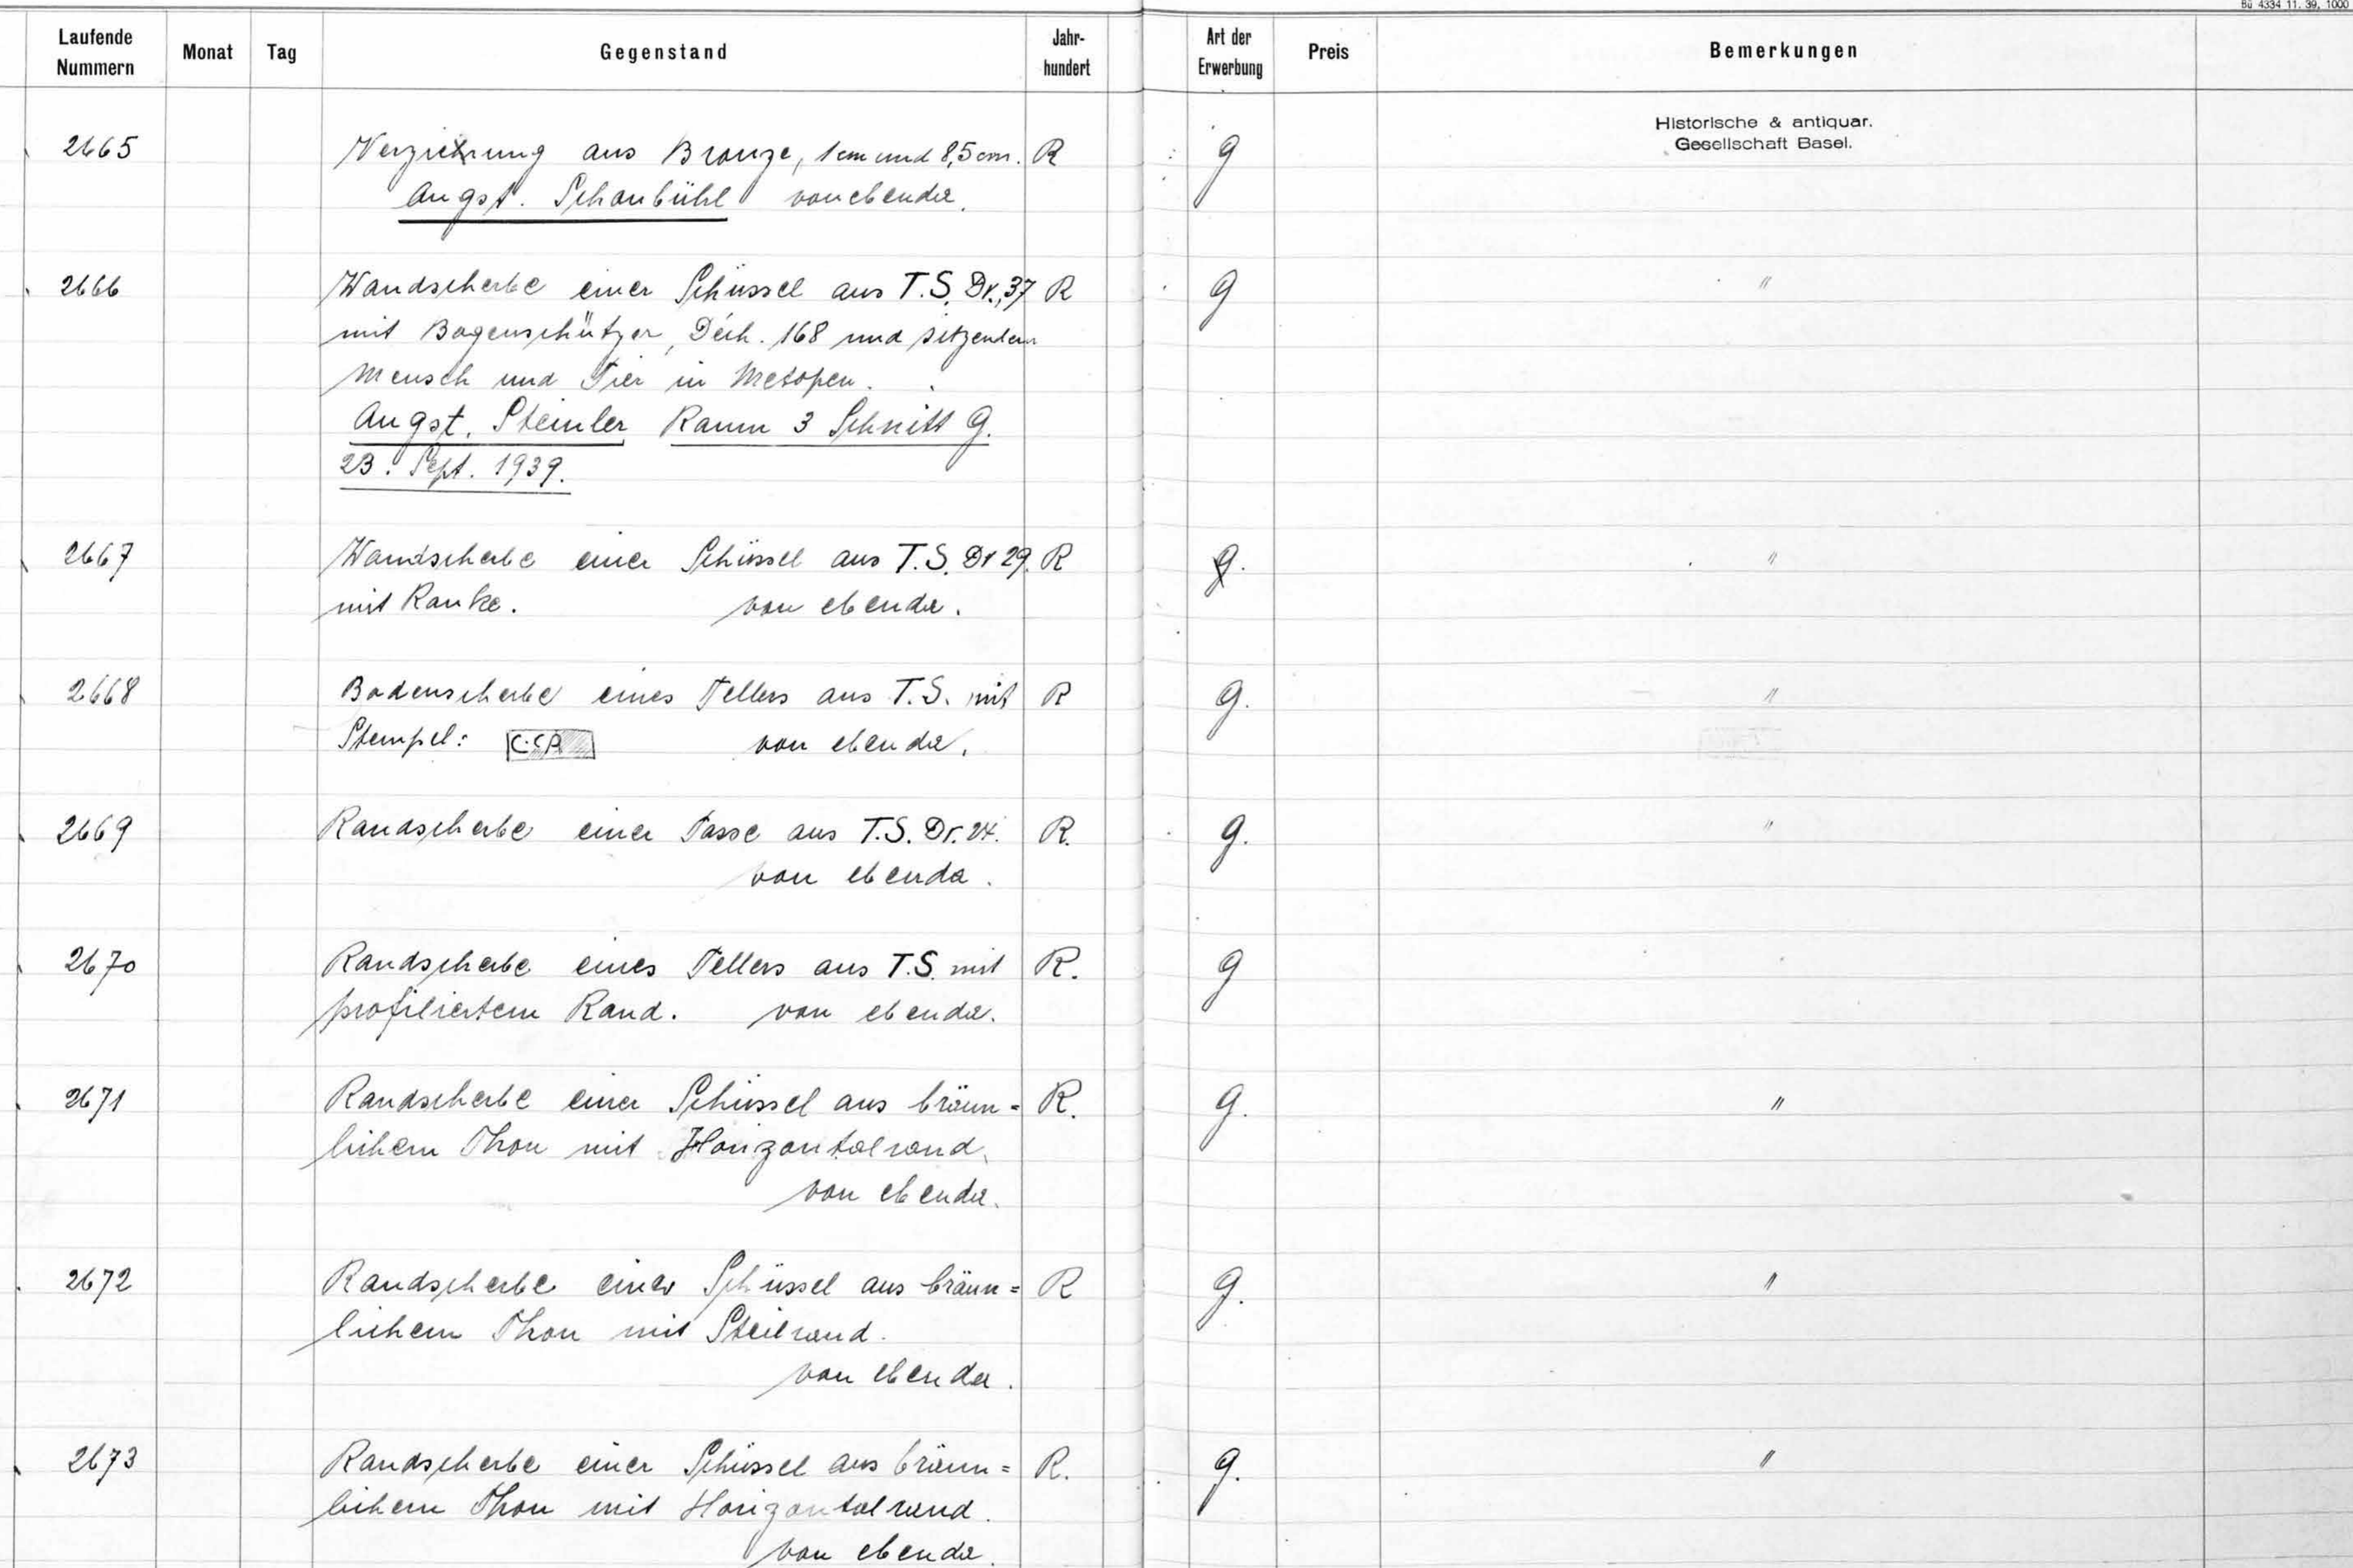 Bü 4334 11. 39. 1000
Laufende Nummern Monat Tag Gegenstand Jahr-hundert Art der Erwerbung Preis Bemerkungen
Historische & antiquar.
Gesellschaft Basel.
2665 Verzierung aus Bronze, 1 cm und 8,5 cm. R g
Augst. Schönbühl von ebenda.
2666 Wandscherbe einer Schüssel aus T.S. Dr. 37 R g "
mit Bogenschützer, Déch. 168 und sitzendem
Mensch und Tier in Metopen.
Augst. Steinler Raum 3 Schnitt G.
23. Sept. 1939.
2667 Wandscherbe einer Schüssel aus T.S. Dr 29. R g. "
mit Ranke. von ebenda.
2668 Bodenscherbe eines Tellers aus T.S. mit R g. "
Stempel: von ebenda.
2669 Randscherbe einer Tasse aus T.S. Dr. 24. R. g. "
von ebenda.
2670 Randscherbe eines Tellers aus T.S. mit R. g
profiliertem Rand. von ebenda.
2671 Randscherbe einer Schüssel aus bräun= R. g. "
lichem Thon mit Horizontalrand.
von ebenda.
2672 Randscherbe einer Schüssel aus bräun= R g. "
lichem Thon mit Steilrand.
von ebenda.
2673 Randscherbe einer Schüssel aus bräun= R. g. "
lichem Thon mit Horizontalrand.
von ebenda.